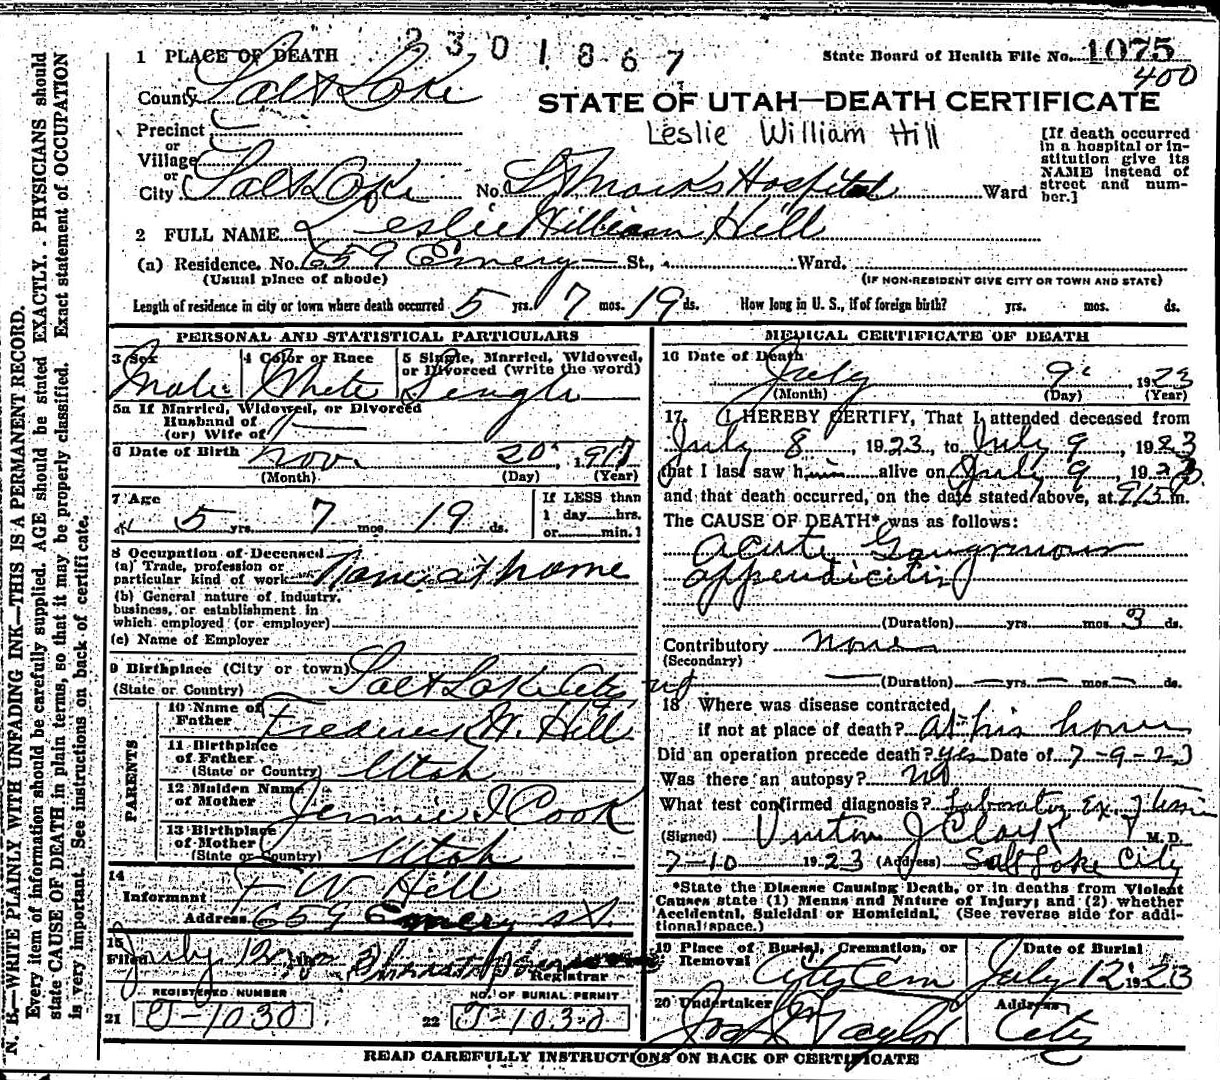 2301867
State Board of Health File No. 1075
400
1 PLACE OF DEATH
County Salt Lake
STATE OF UTAH—DEATH CERTIFICATE
Leslie William Hill
[If death occurred in a hospital or institution give its NAME instead of street and number.]
Precinct
or
Village
or
City Salt Lake No. St Marks Hospital Ward
2 FULL NAME Leslie William Hill
(a) Residence. No. 659 Emery St., Ward.
(Usual place of abode) (IF NON-RESIDENT GIVE CITY OR TOWN AND STATE)
Length of residence in city or town where death occurred 5 yrs. 7 mos. 19 ds. How long in U. S., if of foreign birth? yrs. mos. ds.
PERSONAL AND STATISTICAL PARTICULARS
3 Sex Male
4 Color or Race White
5 Single, Married, Widowed, or Divorced (write the word) Single
5a If Married, Widowed, or Divorced
Husband of
(or) Wife of
6 Date of Birth Nov 20 1917
(Month) (Day) (Year)
7 Age
5 yrs. 7 mos. 19 ds.
If LESS than
1 day hrs.
or min.
8 Occupation of Deceased
(a) Trade, profession or
particular kind of work None at home
(b) General nature of industry,
business, or establishment in
which employed (or employer)
(c) Name of Employer
9 Birthplace (City or town) Salt Lake City ut
(State or Country)
PARENTS
10 Name of
Father Frederick W. Hill
11 Birthplace
of Father
(State or Country) Utah
12 Maiden Name
of Mother Jennie I Cook
13 Birthplace
of Mother
(State or Country) Utah
14
Informant F W Hill
Address 659 Emery st.
15
Filed July 12 Registrar
REGISTERED NUMBER NO. OF BURIAL PERMIT
21 J-1030 22 J-1030
MEDICAL CERTIFICATE OF DEATH
16 Date of Death
July 9 1923
(Month) (Day) (Year)
17. I HEREBY CERTIFY, That I attended deceased from
July 8, 1923, to July 9, 1923
that I last saw him alive on July 9, 1923
and that death occurred, on the date stated above, at 915 m.
The CAUSE OF DEATH* was as follows:
Acute Gangrenous
appendicitis
(Duration) yrs. mos. 3 ds.
Contributory None
(Secondary)
(Duration) yrs. mos. ds.
18 Where was disease contracted
if not at place of death? At his home
Did an operation precede death? yes Date of 7-9-23
Was there an autopsy? no
What test confirmed diagnosis? Laboratory Ex. of tissue
(Signed) Vinton J Clark M. D.
7-10 1923 (Address) Salt Lake City
*State the Disease Causing Death, or in deaths from Violent
Causes state (1) Means and Nature of Injury; and (2) whether
Accidental, Suicidal or Homicidal. (See reverse side for addi-
tional space.)
19 Place of Burial, Cremation, or Removal Date of Burial
City Cem July 12 1923
20 Undertaker Address
Jos Wm Taylor City
READ CAREFULLY INSTRUCTIONS ON BACK OF CERTIFICATE
N. B.—WRITE PLAINLY WITH UNFADING INK—THIS IS A PERMANENT RECORD.
Every item of information should be carefully supplied. AGE should be stated EXACTLY. PHYSICIANS should
state CAUSE OF DEATH in plain terms, so that it may be properly classified. Exact statement of OCCUPATION
is very important. See instructions on back of certificate.